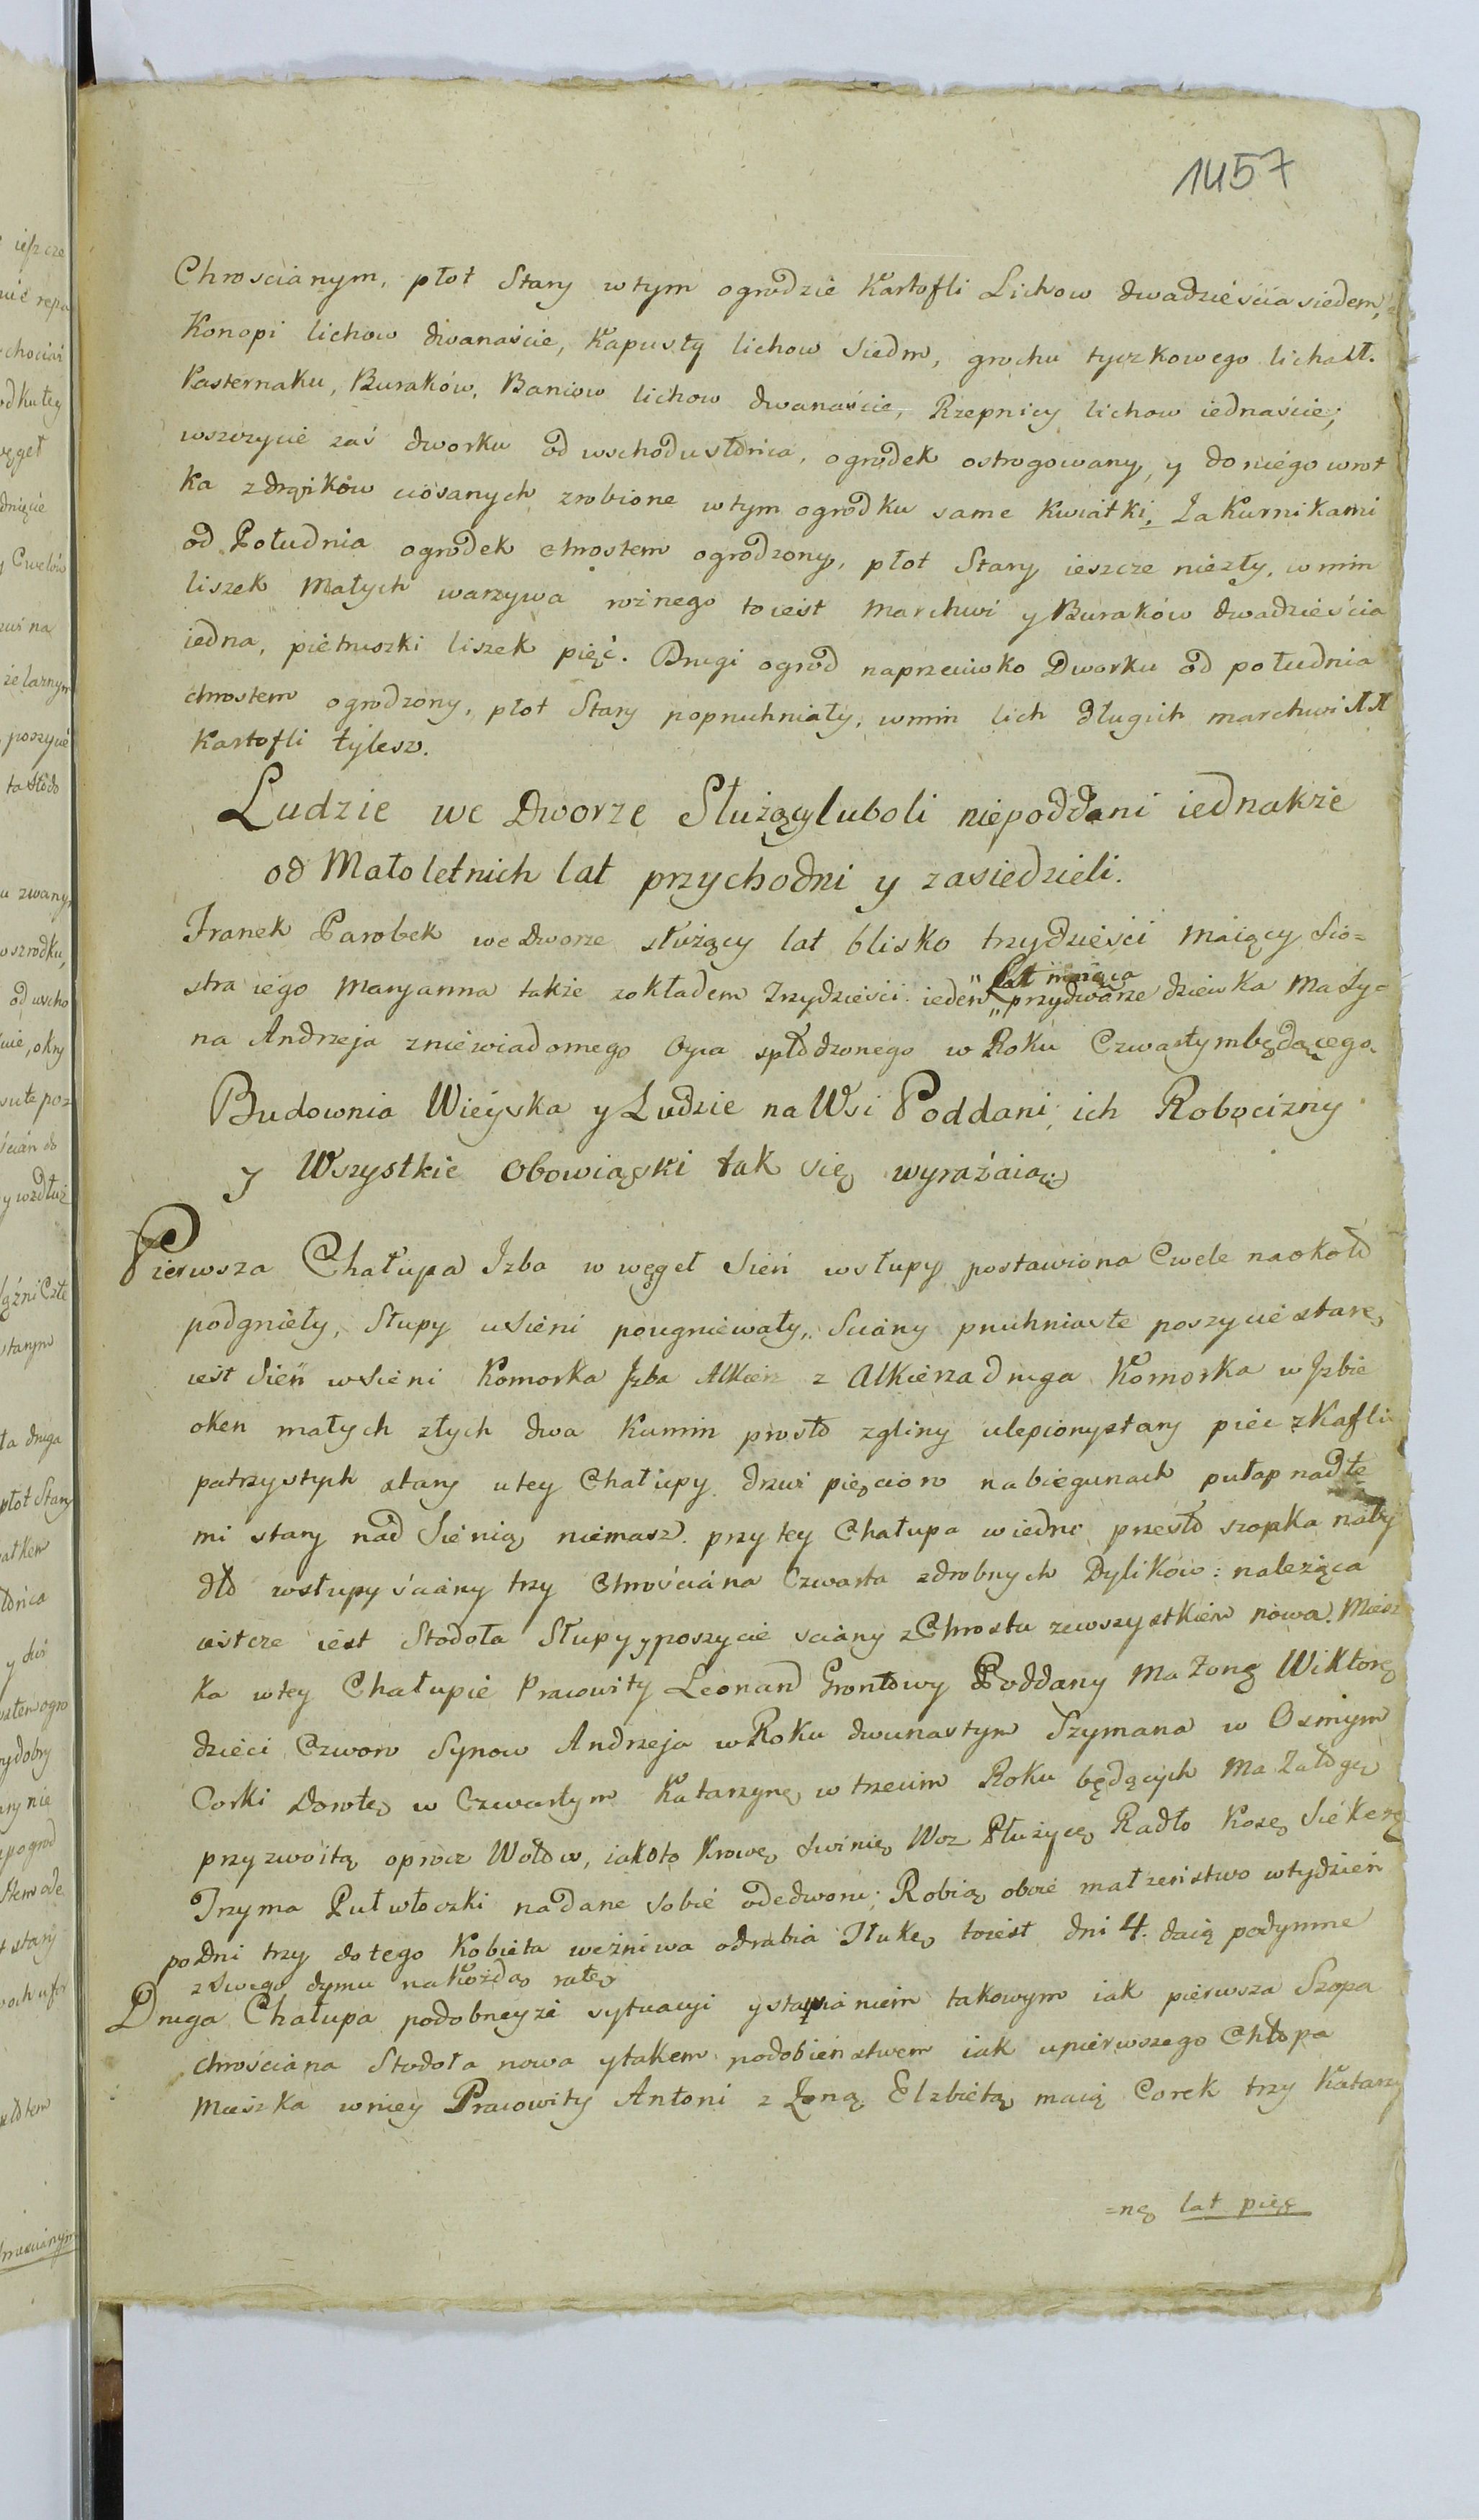 1457
Chroscianym, płot Stary w tym ogrodzie Kartofli Lichow dwadzieścia siedem,
Konopi lichow dwanaście, Kapusty lichow Siedm, grochu tyczkowego licha
Pasternaku, Buraków, Baniow lichow dwanaście, Rzepnicy lichow iednaście;
wszczycie zaś dworku od wschodu słońca, ogrodek ostrogowany, y do niégo wrot
ka z drążków ciosanych zrobione w tym ogrodku same kwiatki, Za Kurnikami
od Południa ogrodek chrostem ogrodzony, płot Stary ieszcze niezły, w nim
liszek Małych warzywa rożnego to iest Marchwi y Buraków dwadzieścia
iedna, piétruszki liszek pięć. Drugi ogrod naprzeciwko Dworku od południa
chrostem ogrodzony, płot Stary popruchniały, w nim lich długich marchwi
Kartofli tylesz.
Ludzie we Dworze Służący luboli niépoddani iednakże
od Małoletnich lat przychodni y zasiedzieli.
Franek Parobek we Dworze służący lat blisko trzydzieści Maiący Sio=
stra iego Maryanna także zokładem Trzydzieści ieden „ przydworze dziewka Ma Sy=
„ Lat maiąca
na Andrzeja z niéwiadomego Oyca spłodzonego w Roku Czwartym będącego
Budownia Wiéyska y Ludzie na Wsi Poddani, ich Robocizny
y Wszystkie Obowiąski tak się wyrażaią
Pierwsza Chałupa Izba w węgeł Sień w słupy postawiona Cwele naokoło
podgniéły, Słupy u Sieni pougniewały, Sciany pruhniałe poszycie stare,
iest Sień w Sieni Komorka Izba Alkierz z Alkierza druga Komorka w Izbie
oken małych złych dwa Kumin prosto z gliny ulepiony stary piéc z Kafli
patrzystych stary u tey Chałupy drzwi pięcioro na biegunach pułap nad te
mi stary nad Siénią niémasz. przy tey Chałupa w iedno przesło szopka na by
dło w słupy ściany trzy Chrościana Czwarta z drobnych Dylików: należąca
ieszcze iest Stodoła Słupy y poszycie sciany z Chrostu ze wszystkiem nowa. Miesz
ka w tey Chałupié Pracowity Leonard Grontowy Poddany Ma Zonę Wiktorę
dzieci Czworo Synow Andrzeja w Roku dwunastym Szymana w Osmym
Corki Dorotę w Czwartym Katarzynę w trzecim Roku będących Ma Załogę
przyzwoitą oprocz Wołów, iakoto Krowę Swinię Woz Płużycę Radło Kosę Siékerę
Trzyma Puł włoczki nadane sobié ode dworu; Robią oboie małżeństwo w tydzień
po Dni trzy do tego Kobieta we żniwa odrabia Tłukę to iest dni 4. daią podymne
z Swego dymu na Kożdą ratę
Druga Chałupa podobneyże sytuacyi y stawianiem takowym iak pierwsza Szopa
chrościana Stodoła nowa y takem podobieństwem iak u pierwszego Chłopa
Mieszka w niey Pracowity Antoni z Zoną Elzbietą maią Corek trzy Katarzy
=nę lat pięć